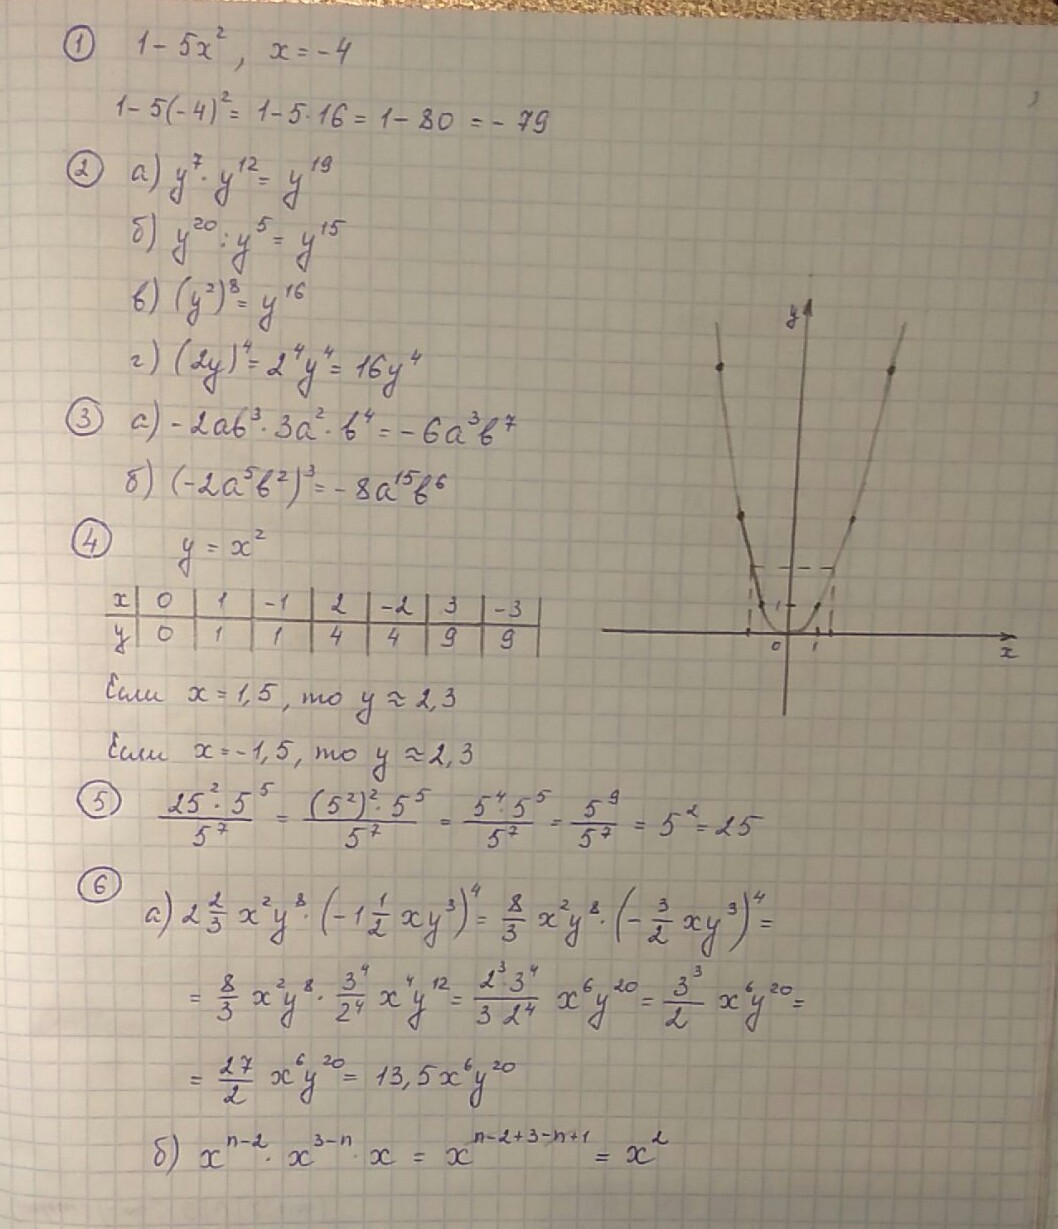 ① 1 - 5x², x = -4
1 - 5(-4)² = 1 - 5·16 = 1 - 80 = - 79
② а) y⁷ · y¹² = y¹⁹
б) y²⁰ : y⁵ = y¹⁵
в) (y²)⁸ = y¹⁶
г) (2y)⁴ = 2⁴y⁴ = 16y⁴
③ а) - 2ab³ · 3a² · b⁴ = - 6a³b⁷
б) (-2a⁵b²)³ = - 8a¹⁵b⁶
④ y = x²
x | 0 | 1 | -1 | 2 | -2 | 3 | -3
y | 0 | 1 | 1 | 4 | 4 | 9 | 9
Если x = 1,5, то y ≈ 2,3
Если x = -1,5, то y ≈ 2,3
y
1
0 1
x
⑤ 25² · 5⁵ / 5⁷ = (5²)² · 5⁵ / 5⁷ = 5⁴ · 5⁵ / 5⁷ = 5⁹ / 5⁷ = 5² = 25
⑥
а) 2 2/3 x²y⁸ · (-1 1/2 xy³)⁴ = 8/3 x²y⁸ · (- 3/2 xy³)⁴ =
= 8/3 x²y⁸ · 3⁴/2⁴ x⁴y¹² = 2³ 3⁴ / 3 2⁴ x⁶y²⁰ = 3³/2 x⁶y²⁰ =
= 27/2 x⁶y²⁰ = 13,5x⁶y²⁰
б) xⁿ⁻² · x³⁻ⁿ · x = xⁿ⁻²⁺³⁻ⁿ⁺¹ = x²